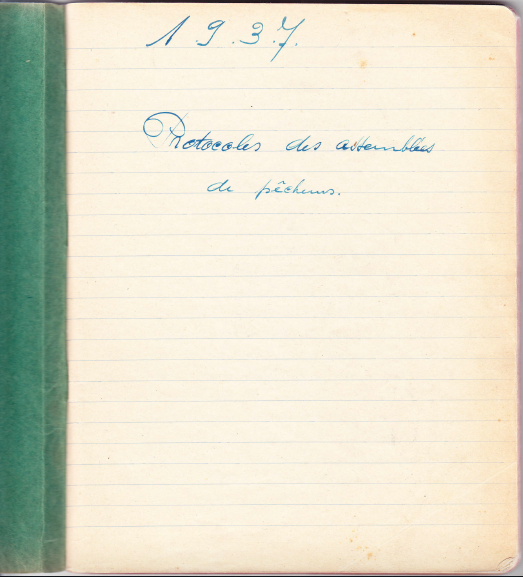 1.9.3.7.
Protocoles des assemblées
de pêcheurs.